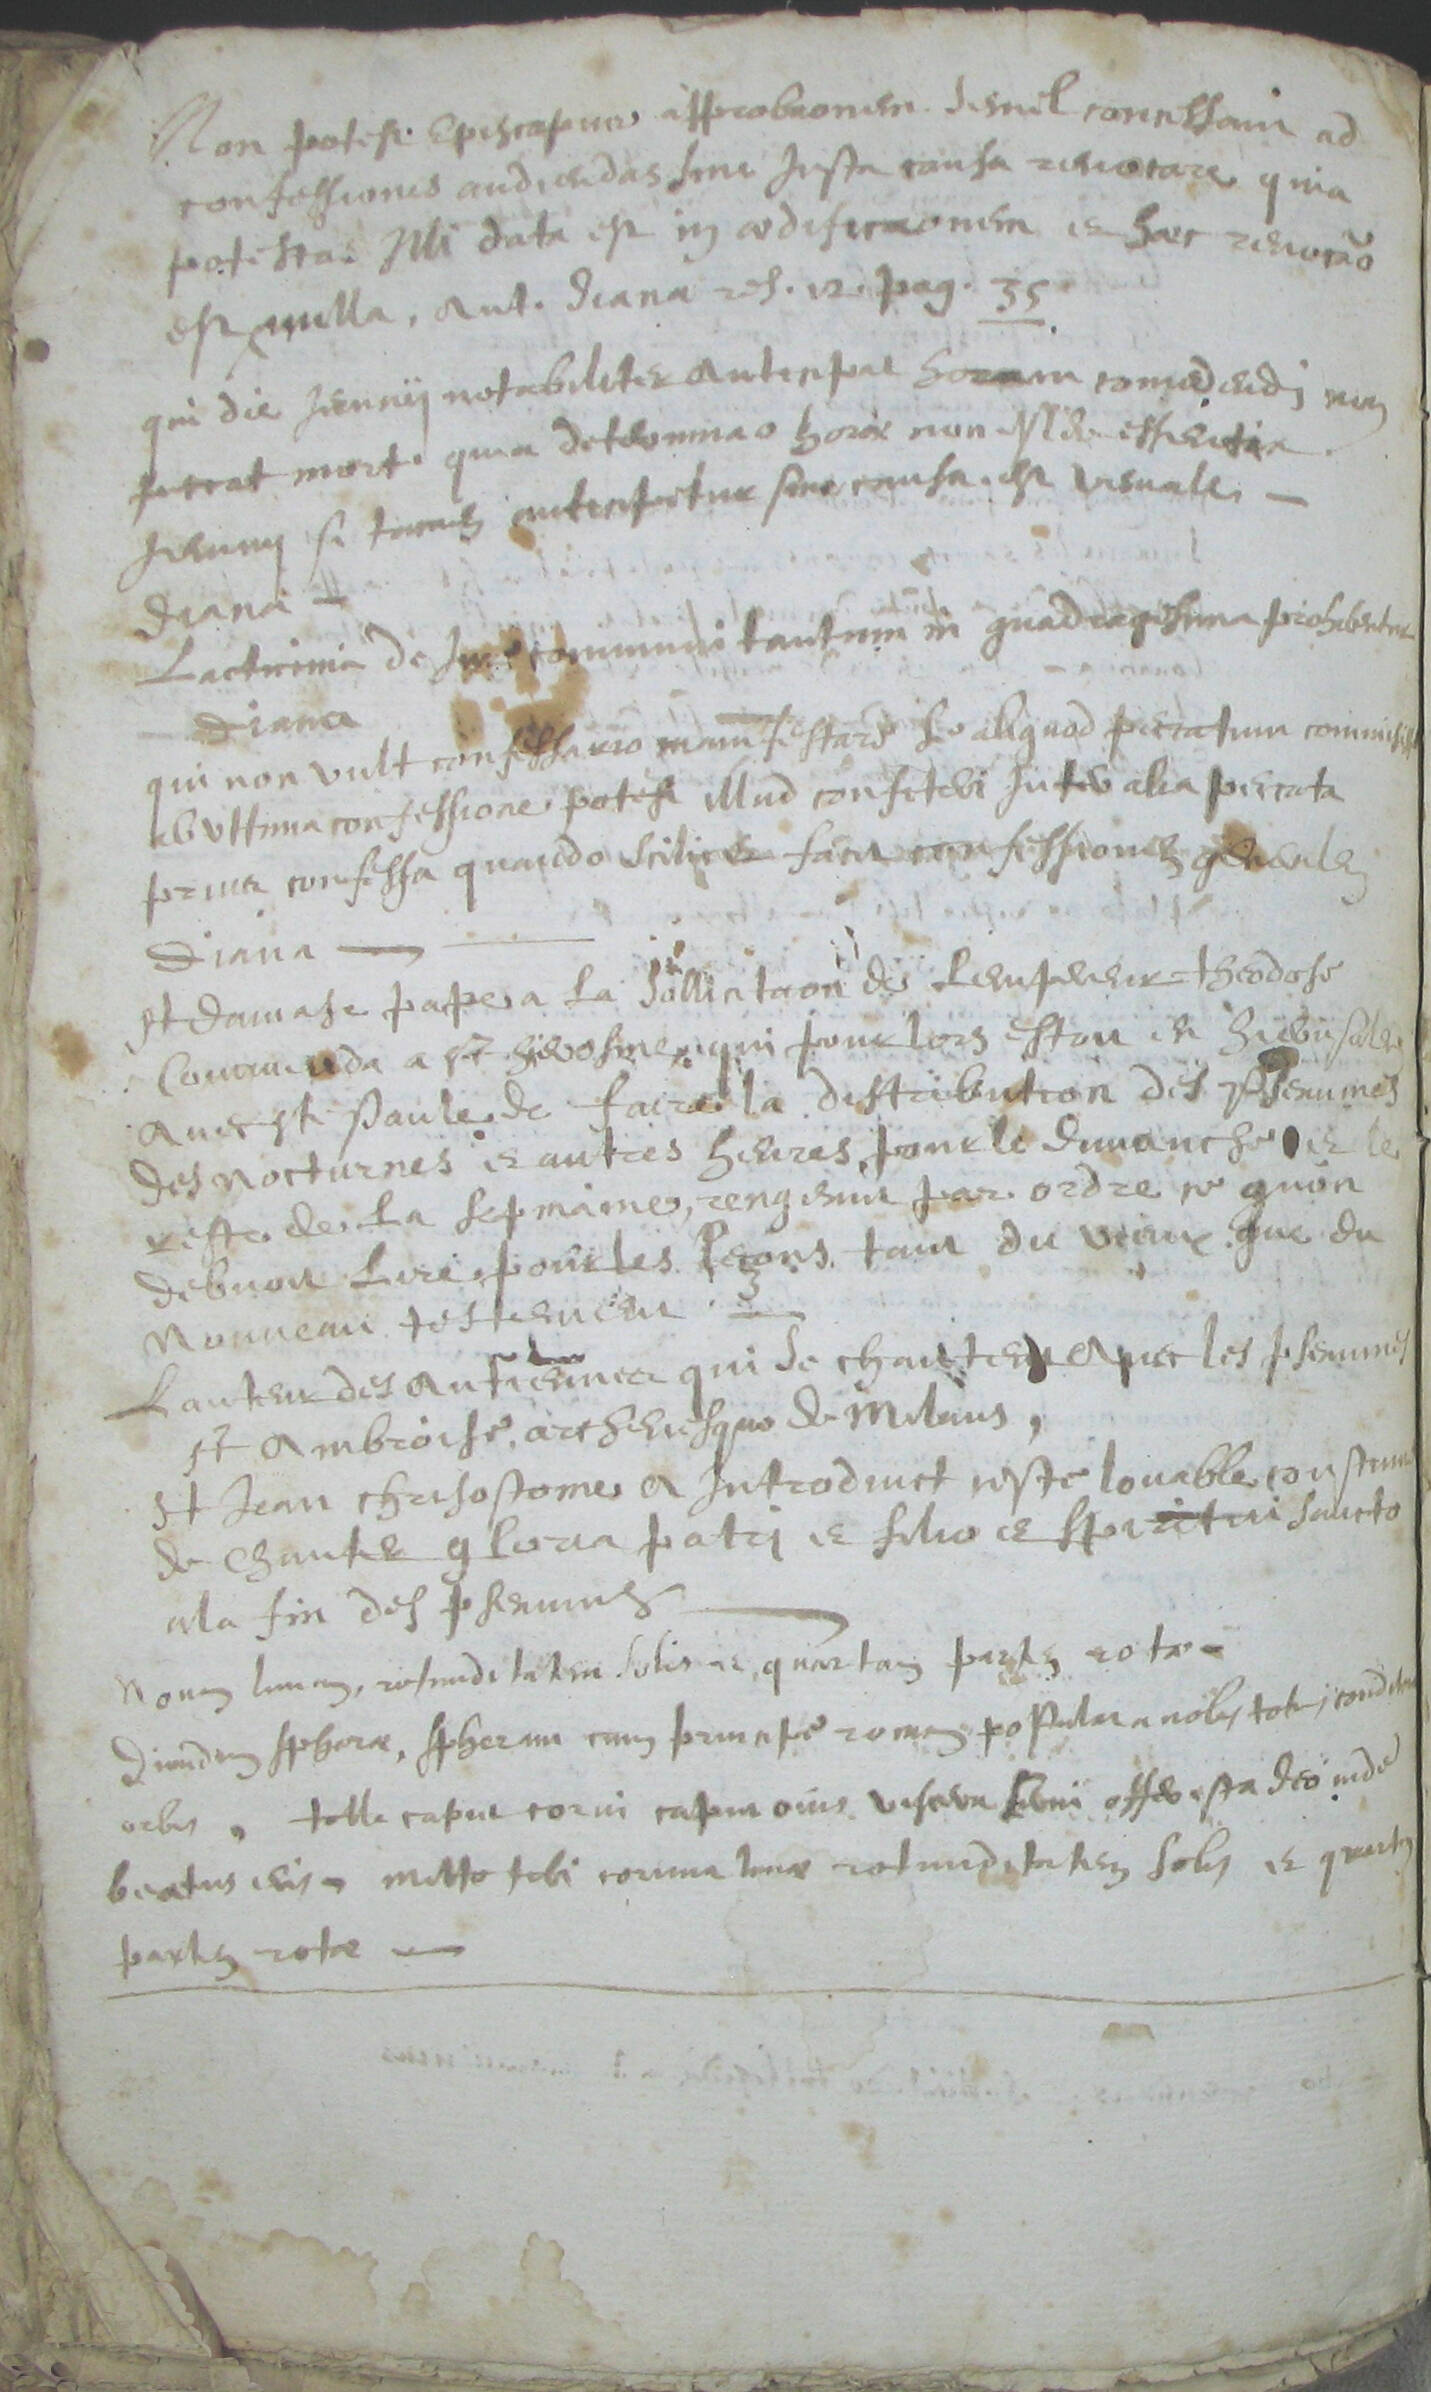 Non potest Episcopus approbaonem semel concessam ad
confessiones audiendas sine Justa causa revocare quia
potestas Illi data est in ædificaonem et haec revocao
est nulla, Ant. Diana res. 12. pag. 35
qui die Jeunij notabiliter anticipat horam comedendi non
peccat mort. quia determinao horæ non est de essentia
Jeiunij si tamen anticipetur sine causa est veniale
Diana
Lacticinia de Jure communi tantum in quadragesima prohibentur
Diana
qui non vult confessario manifestare se aliquod peccatum commisisse
ab ultima confessione potest illud confiteri Inter alia peccata
prius confessa quando scilicet facit confessionem generalem
Diana
st Damase pape a La sollicitaon de Lempereur theodose
Commenda a st hierosme qui pour lors estoit en hierusalem
Avec ste Paule de faire la distribution des Psseaumes
des Nocturnes et autres heures pour le dimanche et le
reste de La sepmaine, rengeant par ordre ce quon
debvoit Lire pour les leçons tant du vieux que du
Nouveau testement
Lauteur des Antiennes qui se chantent avec les pseaumes
st Ambroise archevesque de Milans,
st Jean chrisostome a Introduict ceste louable coustume
de chanter gloria patri et filio et spiritui sancto
a la fin des pseaumes
Novam lunam, rotunditatem solis et quartam partem rotæ
Dimidium sphæræ, spheram cum principe romæ postulat a nobis totius conditor
orbis, tolle caput corvi caput ovis viscera offer ista deo inde
beatus eris, mitto tibi cornua lunæ rotunditatem solis et quartam
partem rotæ